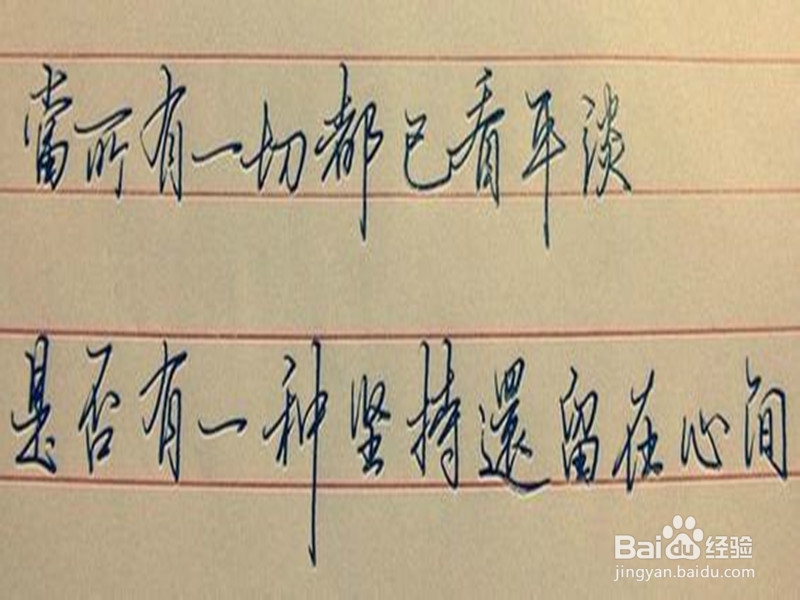 當所有一切都已看平淡
是否有一种坚持還留在心间
Baidu经验
jingyan.baidu.com